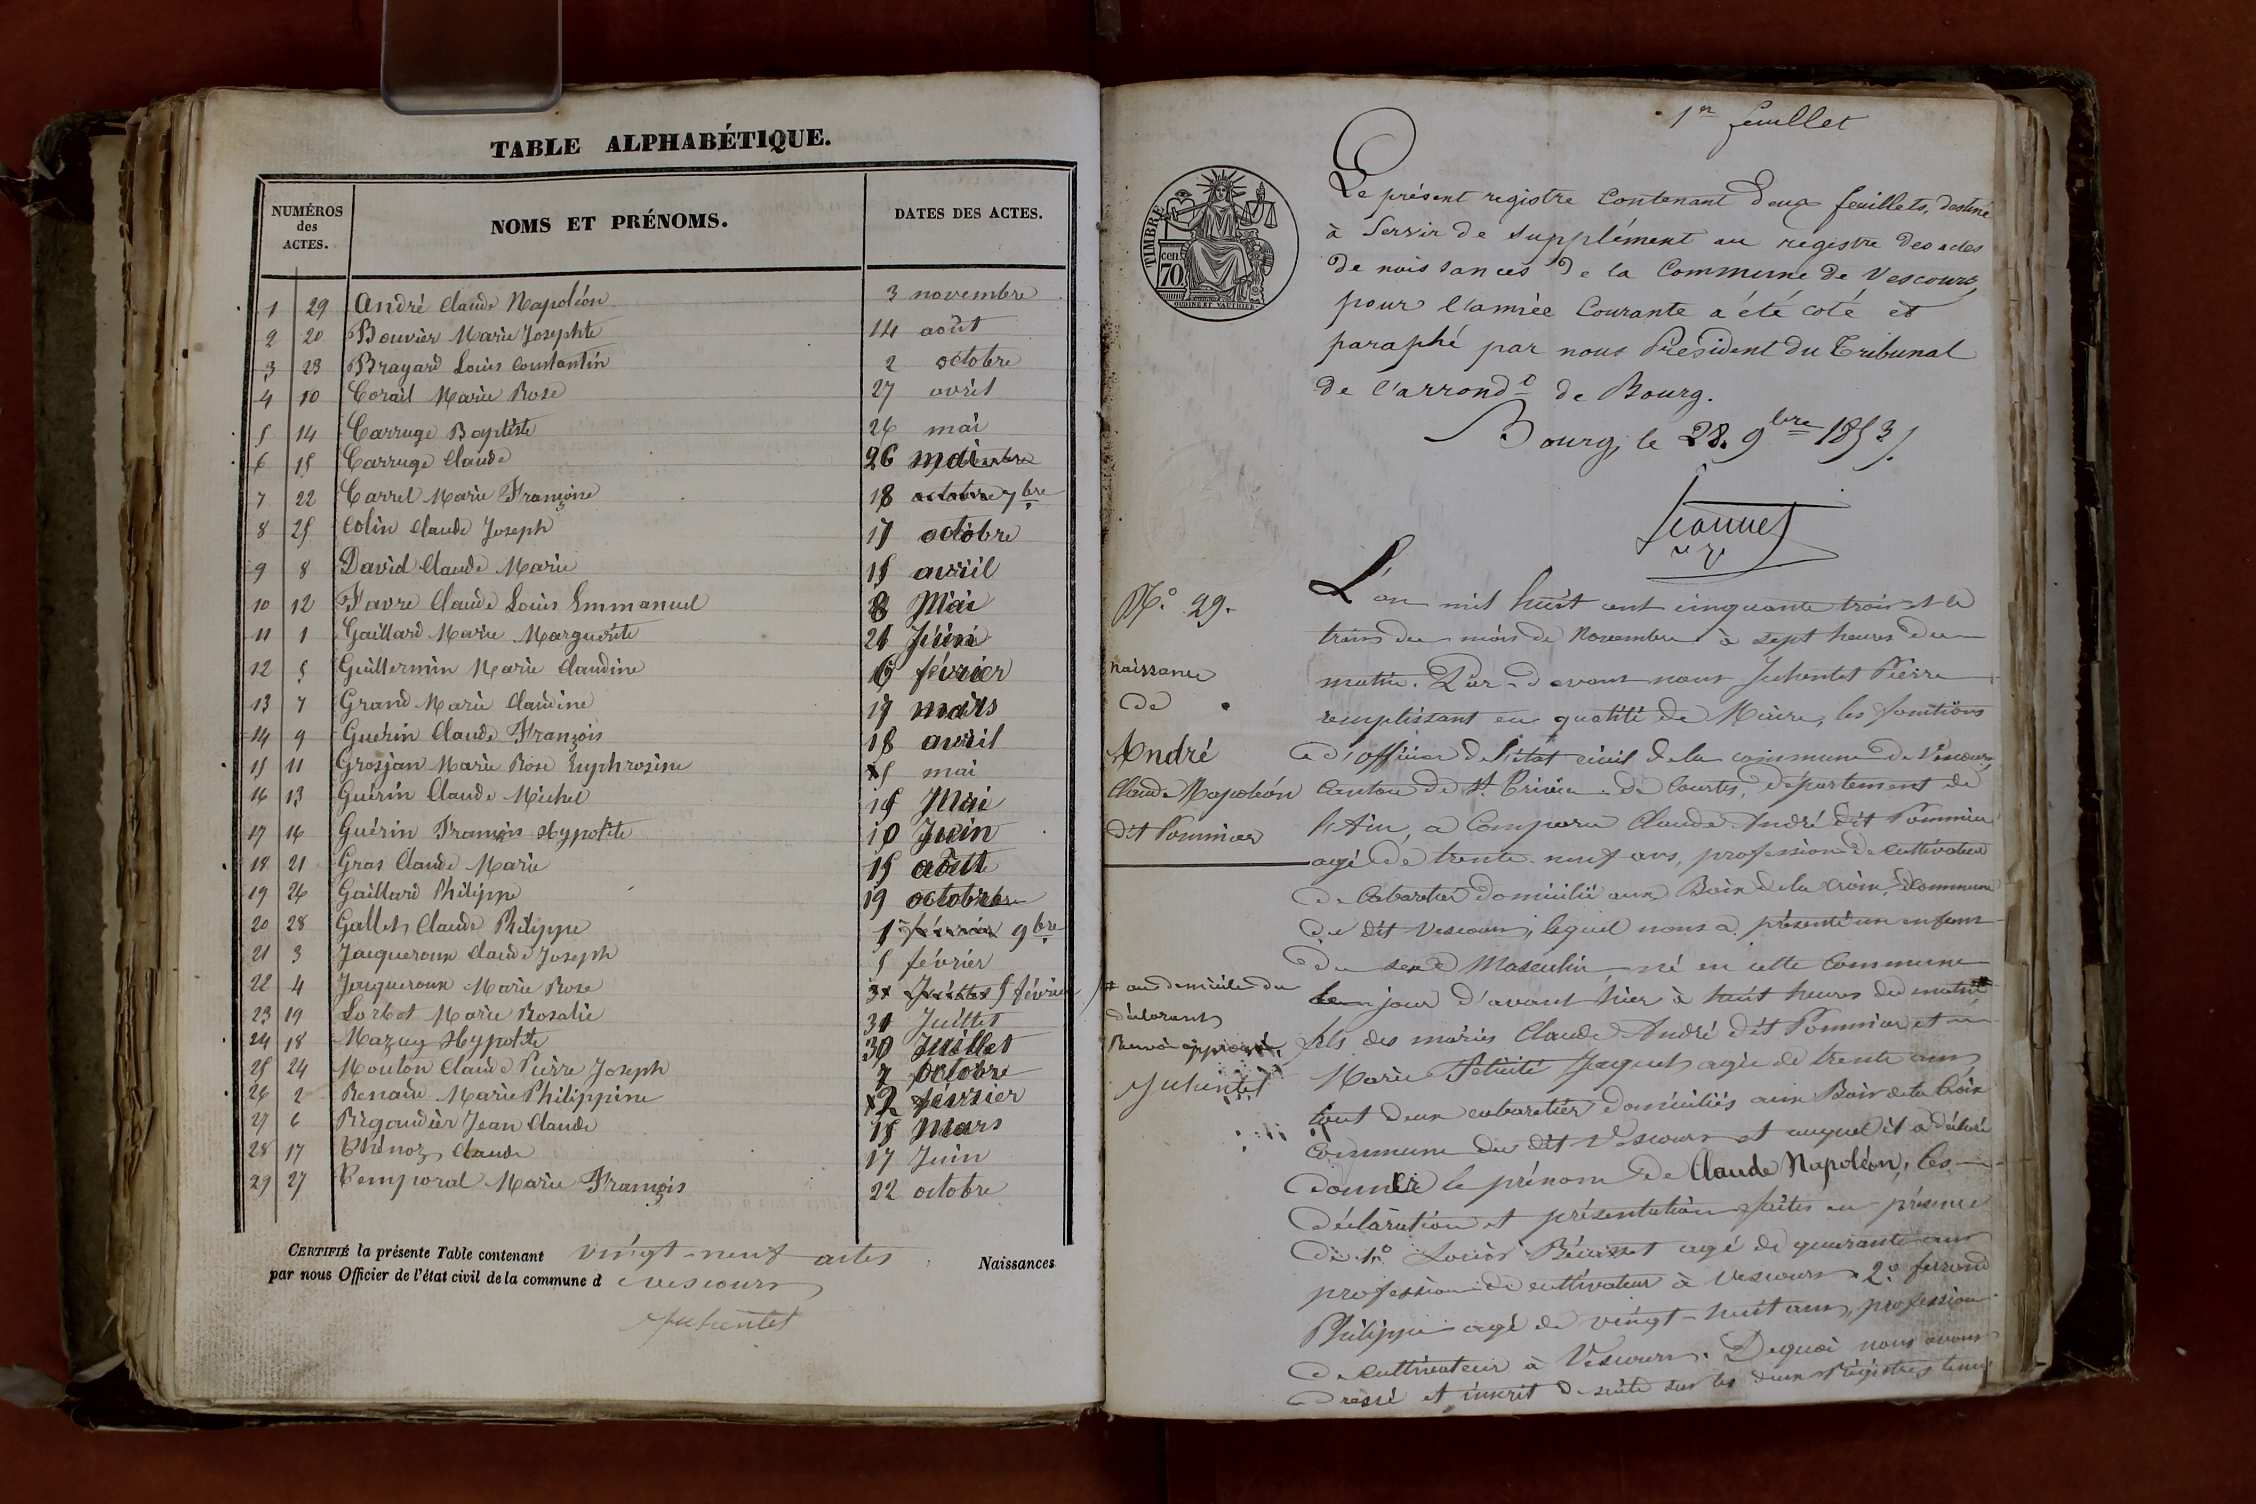 TABLE ALPHABÉTIQUE.
NUMÉROS des ACTES. NOMS ET PRÉNOMS. DATES DES ACTES.
1 29 André Claude Napoléon 3 novembre
2 20 Bouvier Marie Josephte 14 août
3 23 Brayard Louis Constantin 2 octobre
4 10 Corail Marie Rose 27 avril
5 14 Carruge Baptiste 26 mai
6 15 Carruge Claude 26 mai
7 22 Carrel Marie Françoise 18 octobre 7bre
8 25 Colin Claude Joseph 17 octobre
9 8 David Claude Marie 15 avril
10 12 Favre Claude Louis Emmanuel 8 Mai
11 1 Gaillard Marie Marguerite 21
12 5 Guillermin Marie Claudine 6 février
13 7 Grand Marie Claudine 17 mars
14 9 Guérin Claude François 18 avril
15 11 Grosjan Marie Rose Euphrosine 5 mai
16 13 Guérin Claude Michel 15 Mai
17 16 Guérin François Hypolite 10 Juin
18 21 Gras Claude Marie 15 août
19 26 Gaillard Philippe 19 octobre
20 28 Gallet Claude Philippe 1er février 9bre
21 3 Jacqueroux Claude Joseph 5 février
22 4 Jacqueroux Marie Rose 31 Juillet 5 février
23 19 Lorbet Marie Rosalie 31 Juillet
24 18 Mazuy Hypolite 30 Juillet
25 24 Mouton Claude Pierre Joseph 7 octobre
26 2 Renaud Marie Philippine 2 février
27 6 Rigaudier Jean Claude 15 Mars
28 17 Thénoz Claude 17 Juin
29 27 Temporal Marie François 22 octobre
CERTIFIÉ la présente Table contenant vingt-neuf actes Naissances
par nous Officier de l'état civil de la commune d Vescours
Juhentet
1er feuillet
TIMBRE
70 cen.
Le présent registre Contenant deux feuillets, destiné
à Servir de supplément au registre des actes
de naissances de la Commune de Vescours,
pour l'année Courante a été coté et
paraphé par nous Président du Tribunal
de l'arrondt de Bourg.
Bourg, le 28. 9bre 1853.
Jeannet
N.o 29.
naissance
de
André
Claude Napoléon
dit Pommier
L'an mil huit cent cinquante trois et le
trois du mois de Novembre à sept heures du
matin. Par-devant nous Juhentet Pierre
remplissant en qualité de Maire, les fonctions
d'officier de l'état civil de la commune de Vescours,
Canton de St. Trivier de Courtes, département de
l'Ain, a Comparu Claude André dit Pommier
agé de trente-neuf ans, profession de cultivateur
de Cabaretier domicilié aux Bois de la croix, commune
du dit Vescours, lequel nous a présenté un enfant
du sexe Masculin né en cette Commune
le jour d'avant hier à huit heures du matin #
# au domicile du
déclarant
Renvoi approuvé,
Juhentet
fils des mariés Claude André dit Pommier et
Marie Félicité Jaquet agée de trente ans
tout deux cabaretier domiciliés aux Bois de la Croix
commune du dit Vescours et auquel il a déclaré
donner le prénom de Claude Napoléon, les
déclaration et présentation faites en présence
de 1.o Louis agé de quarante ans
profession de cultivateur à Vescours. 2.o Ferrand
Philippe agé de vingt-huit ans, profession
de cultivateur à Vescours. Dequoi nous avons
dressé et inscrit de suite sur les deux Régistres tenus